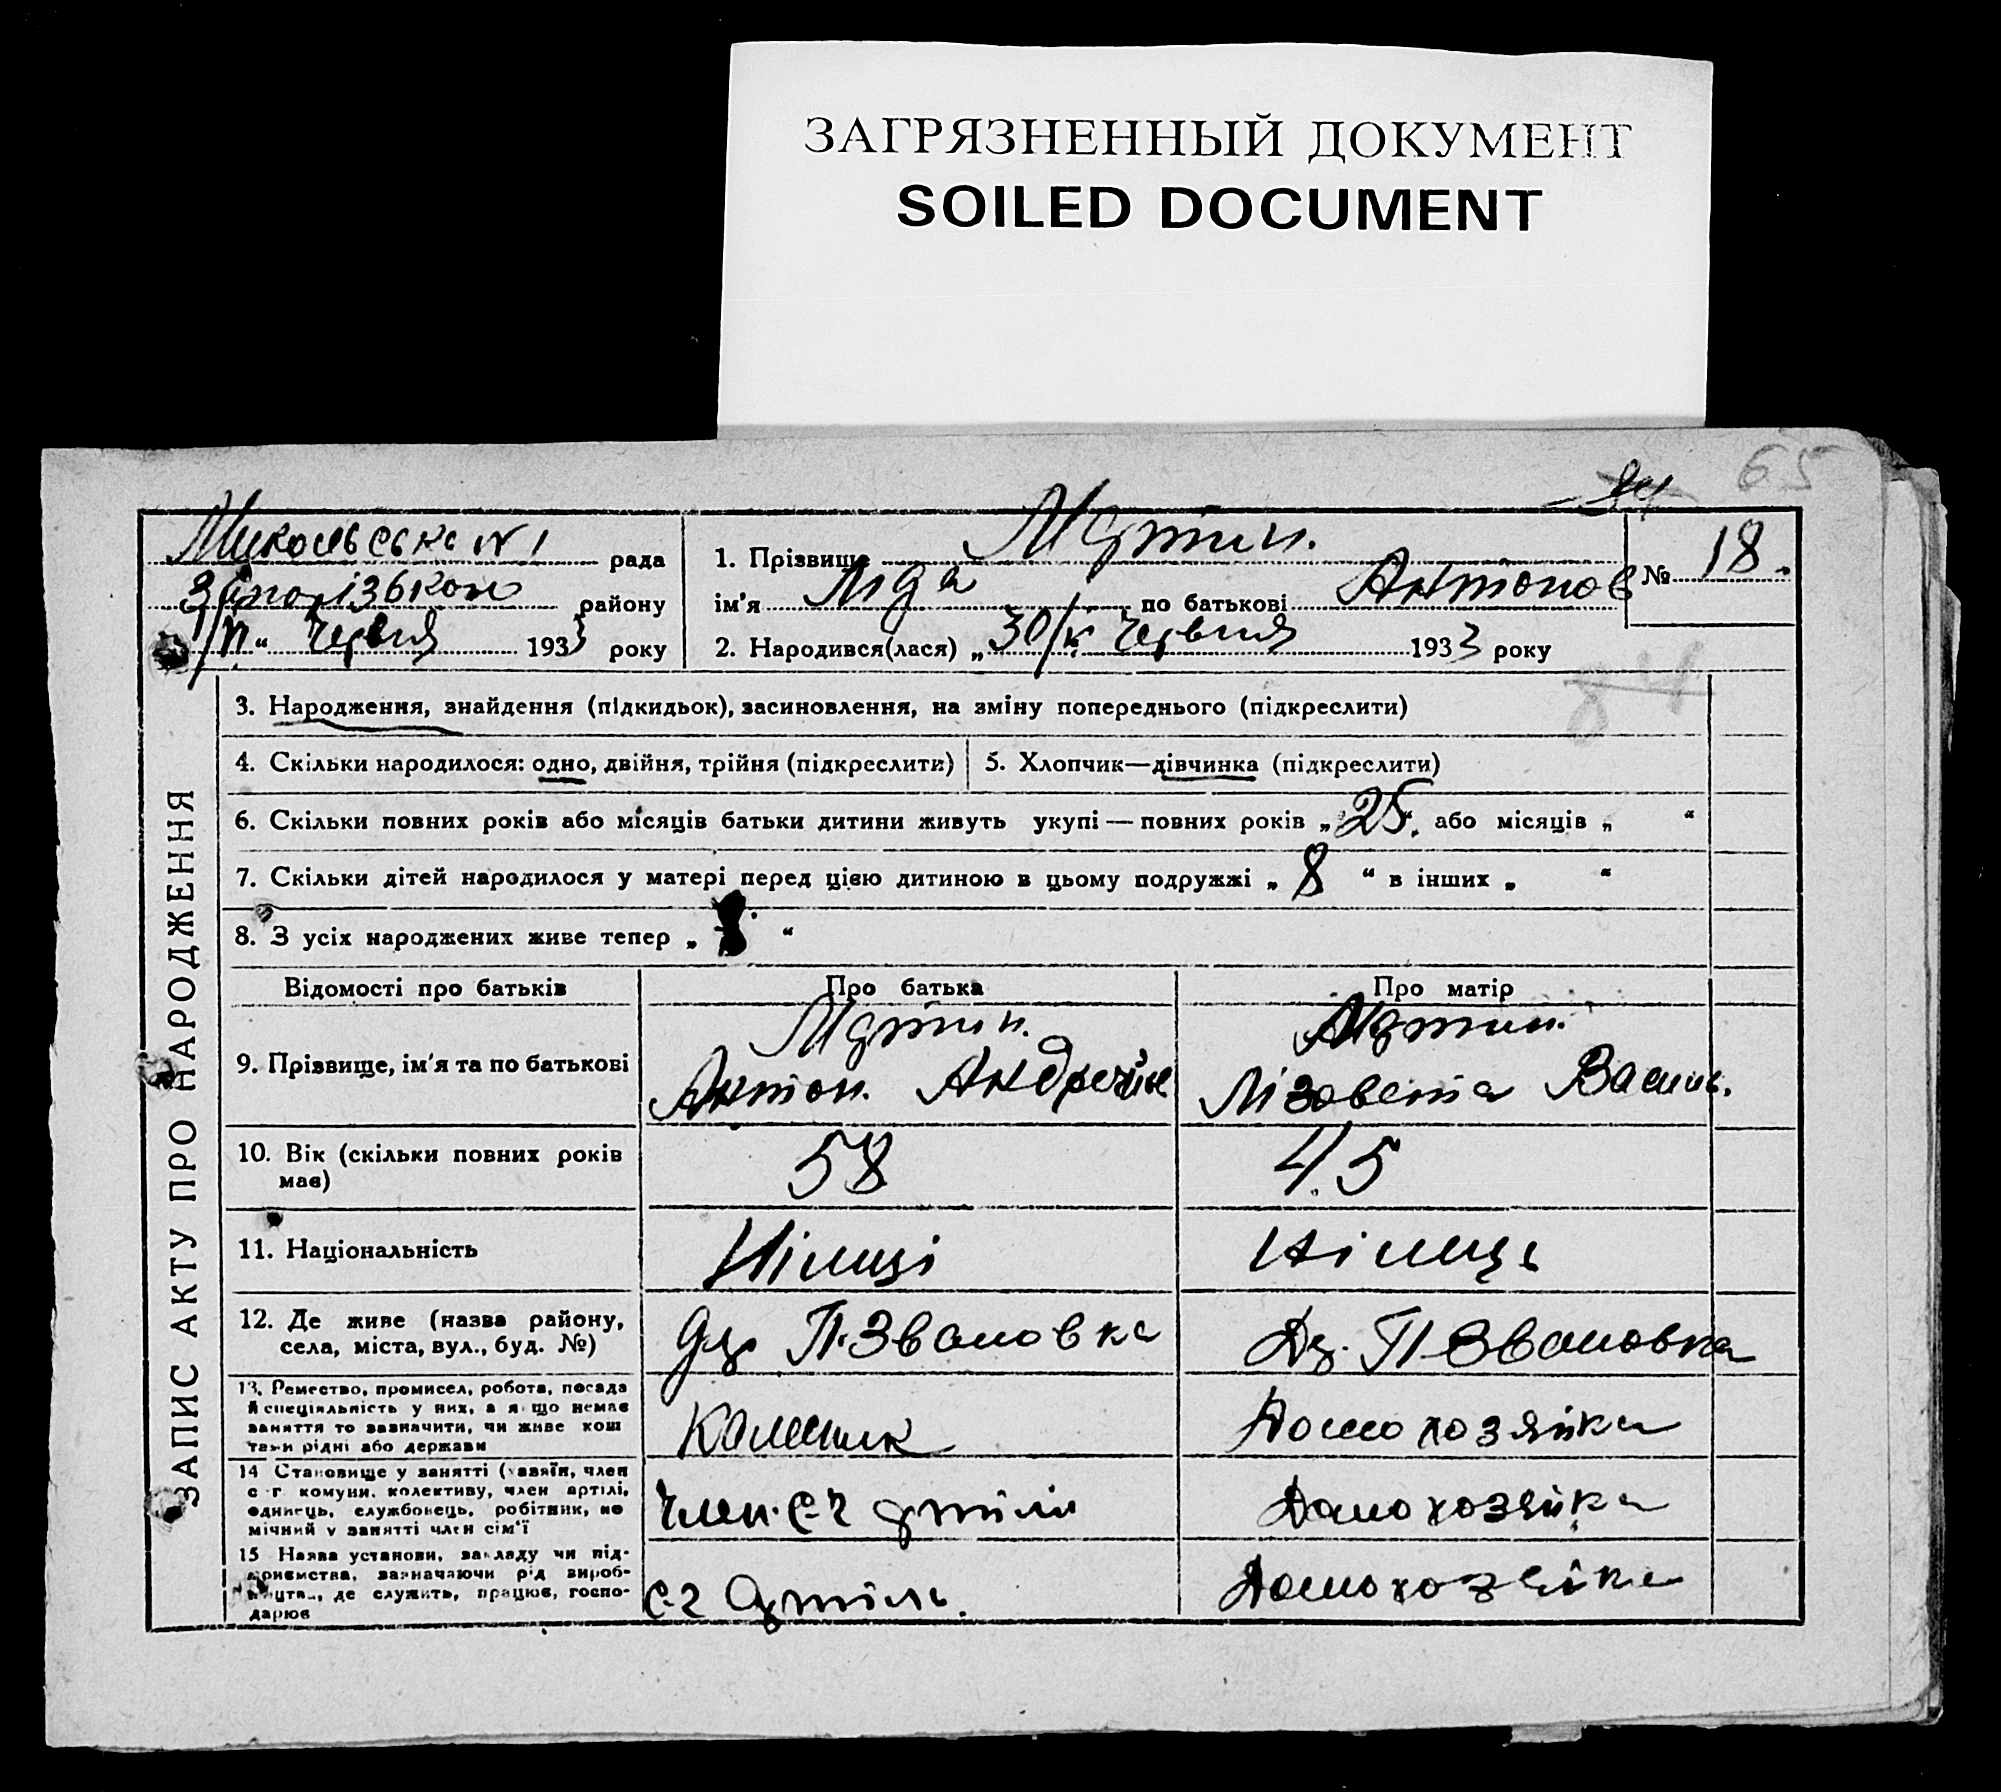 ЗАГРЯЗНЕННЫЙ ДОКУМЕНТ
SOILED DOCUMENT
65
Микольська № 1 рада
Запорізького району
„ “ Червня 1933 року
1. Прізвище Мартин.
ім'я Ліда по батькові Антонов
№ 18.
2. Народився(лася) „30/ Червня 1933 року
ЗАПИС АКТУ ПРО НАРОДЖЕННЯ
3. Народження, знайдення (підкидьок), засиновлення, на зміну попереднього (підкреслити)
4. Скільки народилося: одно, двійня, трійня (підкреслити)
5. Хлопчик—дівчинка (підкреслити)
6. Скільки повних років або місяців батьки дитини живуть укупі — повних років „25“, або місяців „ “
7. Скільки дітей народилося у матері перед цією дитиною в цьому подружжі „ 8 “ в інших „ “
8. З усіх народжених живе тепер „ “
Відомості про батьків
Про батька
Про матір
9. Прізвище, ім'я та по батькові
Мартин.
Антон. Андрейов
Мартин.
Лізовета Василь.
10. Вік (скільки повних років має)
58
45
11. Національність
Німці
Німць
12. Де живе (назва району,
села, міста, вул., буд. №)
П-Звановка
П-Звановка
13. Ремество, промисел, робота, посада
й спеціяльність у них, а якщо немає
заняття то зазначити, чи живе кош
тами рідні або держави
Домохозяйка
14 Становище у занятті (хазяїн, член
с-г комуни, колективу, член артілі,
одинець, службовець, робітник, по
мічний у занятті член сім'ї
Член. С-г артіли
Домохозяйка
15 Назва установи, закладу чи під-
приємства, зазначаючи рід вироб-
ництва, де служить, працює, госпо-
дарює
С-г Артіль.
Домохозяйка